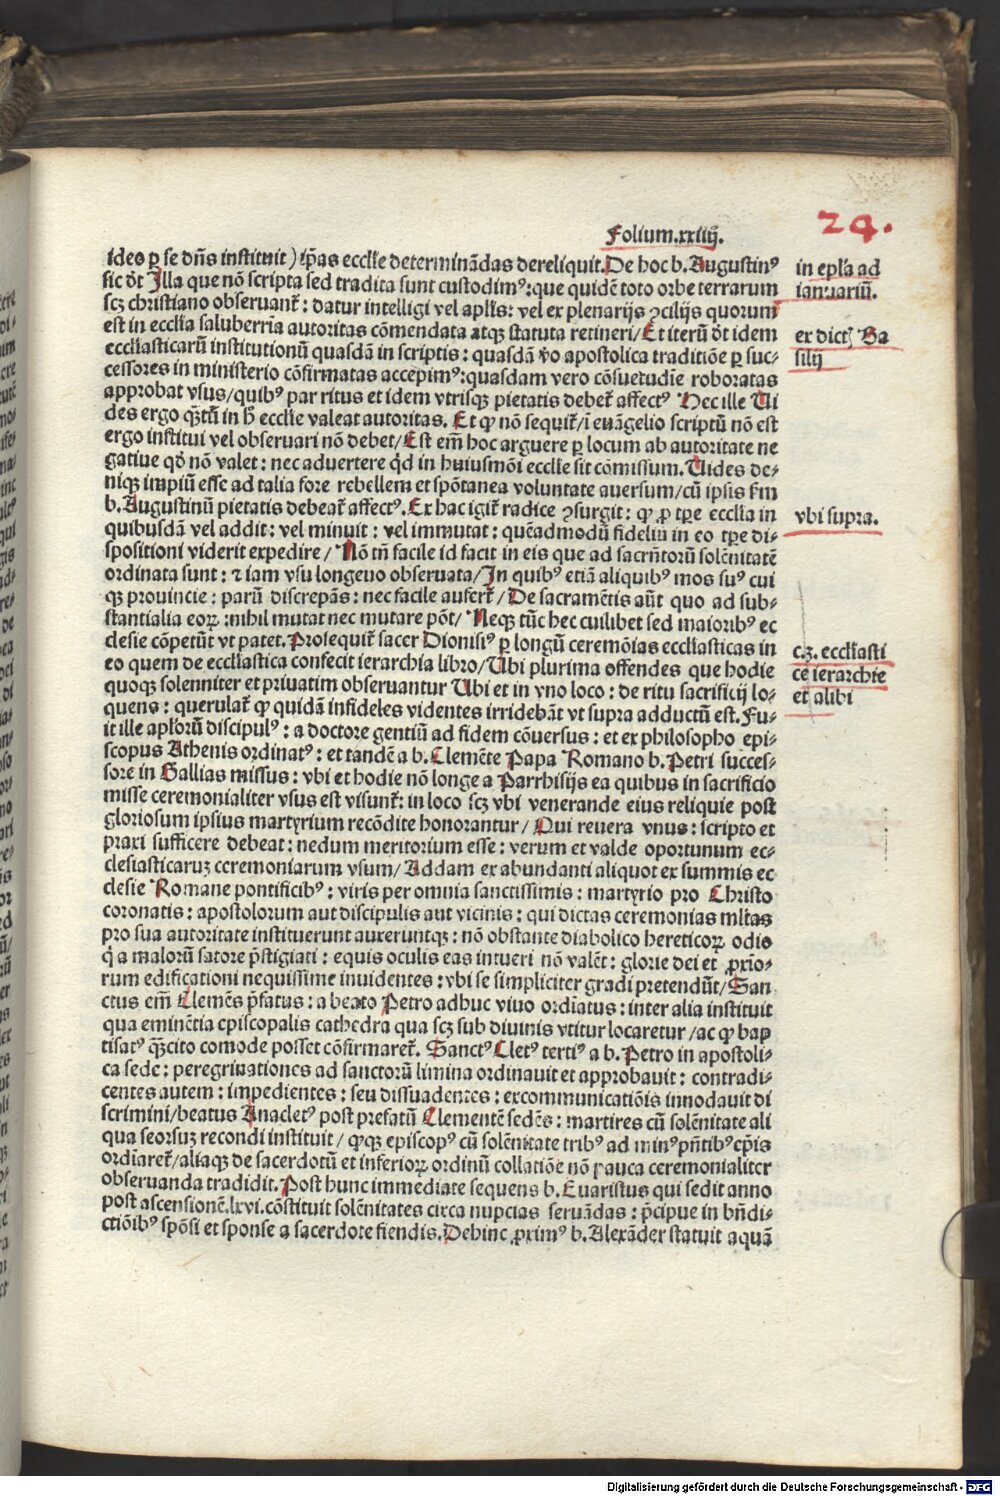 Folium.xxiiij.
24.
ideo ꝑ se dn̄s instituit) ip̄as eccl̄ie determinādas dereliquit. De hoc b. Augustinꝰ
sic dt̄ Illa que nō scripta sed tradita sunt custodimꝰ: que quidē toto orbe terrarum
scꝫ christiano obseruant᷑: datur intelligi vel apl̄is: vel ex plenarijs ꝯcilijs quorum
est in eccl̄ia saluberrīa autoritas cōmendata atqꝫ statuta retineri/ Et iterū dt̄ idem
eccl̄iasticarū institutionū quasdā in scriptis: quasdā v̄o apostolica traditiōe ꝑ suc⸗
cessores in ministerio cōfirmatas accepimꝰ: quasdam vero cōsuetudīe roboratas
approbat vsus/ quibꝰ par ritus et idem vtrisqꝫ pietatis debet᷑ affectꝰ Hec ille Ui
des ergo q̄tū in h̄ eccl̄ie valeat autoritas. Et ꝙ nō sequit᷑/ ī euāgelio scriptū nō est
ergo institui vel obseruari nō debet/ Est em̄ hoc arguere ꝑ locum ab autoritate ne
gatiue qd̄ nō valet: nec aduertere q̇d in huiusmōi eccl̄ie sit cōmissum. Uides de⸗
niqꝫ impiū esse ad talia fore rebellem et spōtanea voluntate auersum/ cū ipsis s̄m
b. Augustinū pietatis debeat᷑ affectꝰ. Ex hac igit᷑ radice ꝯsurgit: ꝙ ꝓ tp̄e eccl̄ia in
quibusdā vel addit: vel minuit: vel immutat: quēadmodū fidelium in eo tp̄e di⸗
spositioni viderit expedire/ Nō tn̄ facile id facit in eis que ad sacr̄ntorū solēnitatē
ordinata sunt: ⁊ iam vsu longeuo obseruata/ In quibꝰ etiā aliquibꝰ mos suꝰ cui
qꝫ prouincie: parū discrepās: nec facile aufert᷑/ De sacramētis aūt quo ad sub⸗
stantialia eoꝝ: nihil mutat nec mutare pōt/ Neqꝫ tūc hec cuilibet sed maioribꝰ ec
clesie cōpetūt vt patet. Prosequit᷑ sacer Dionisiꝰ ꝑ longū ceremōias eccl̄iasticas in
eo quem de eccl̄iastica confecit ierarchia libro/ Ubi plurima offendes que hodie
quoqꝫ solenniter et priuatim obseruantur Ubi et in vno loco: de ritu sacrificij lo⸗
quens: querulat᷑ ꝙ quidā infideles videntes irridebāt vt supra adductū est. Fu⸗
it ille apl̄orū discipulꝰ: a doctore gentiū ad fidem cōuersus: et ex philosopho epi⸗
scopus Athenis ordinatꝰ: et tandē a b. Clemēte Papa Romano b. Petri succes⸗
sore in Gallias missus: vbi et hodie nō longe a Parrhisijs ea quibus in sacrificio
misse ceremonialiter vsus est visunt᷑: in loco scꝫ vbi venerande eius reliquie post
gloriosum ipsius martyrium recōdite honorantur/ Qui reuera vnus: scripto et
praxi sufficere debeat: nedum meritorium esse: verum et valde oportunum ec⸗
clesiasticaruꝫ ceremoniarum vsum/ Addam ex abundanti aliquot ex summis ec
clesie Romane pontificibꝰ: viris per omnia sanctissimis: martyrio pro Christo
coronatis: apostolorum aut discipulis aut vicinis: qui dictas ceremonias ml̄tas
pro sua autoritate instituerunt auxeruntqꝫ: nō obstante diabolico hereticoꝝ odio
q̇ a malorū satore p̄stigiati: equis oculis eas intueri nō valēt: glorie dei et ꝓxīo⸗
rum edificationi nequissime inuidentes: vbi se simpliciter gradi pretendūt/ San
ctus em̄ Clemēs p̄fatus: a beato Petro adhuc viuo ordīatus: inter alia instituit
qua eminētia episcopalis cathedra qua scꝫ sub diuinis vtitur locaretur/ ac ꝙ bap
tisatꝰ qꝫcito comode posset cōfirmaret᷑. Sanctꝰ Cletꝰ tertiꝰ a b. Petro in apostoli⸗
ca sede: peregrinationes ad sanctorū limina ordinauit et approbauit: contradi⸗
centes autem: impedientes: seu dissuadentes: excommunicatiōis innodauit di
scrimini/ beatus Anacletꝰ post prefatū Clementē sedēs: martires cū solēnitate ali
qua seorsuꝫ recondi instituit/ ꝙqꝫ episcopꝰ cū solēnitate tribꝰ ad minꝰ pn̄tibꝰ ep̄is
ordīaret᷑/ aliaqꝫ de sacerdotū et inferioꝝ ordinū collatiōe nō pauca ceremonialiter
obseruanda tradidit. Post hunc immediate sequens b. Euaristus qui sedit anno
post ascensionē.lxvi. cōstituit solēnitates circa nupcias seruādas: p̄cipue in bn̄di⸗
ctiōibꝰ spōsi et sponse a sacerdote fiendis. Dehinc ꝓximꝰ b. Alexāder statuit aquā
in epl̄a ad
ianuariū.
ex dict Ba
silij
vbi supra.
c.3. eccl̄iasti
ce ierarchie
et alibi
Digitalisierung gefördert durch die Deutsche Forschungsgemeinschaft - DFG